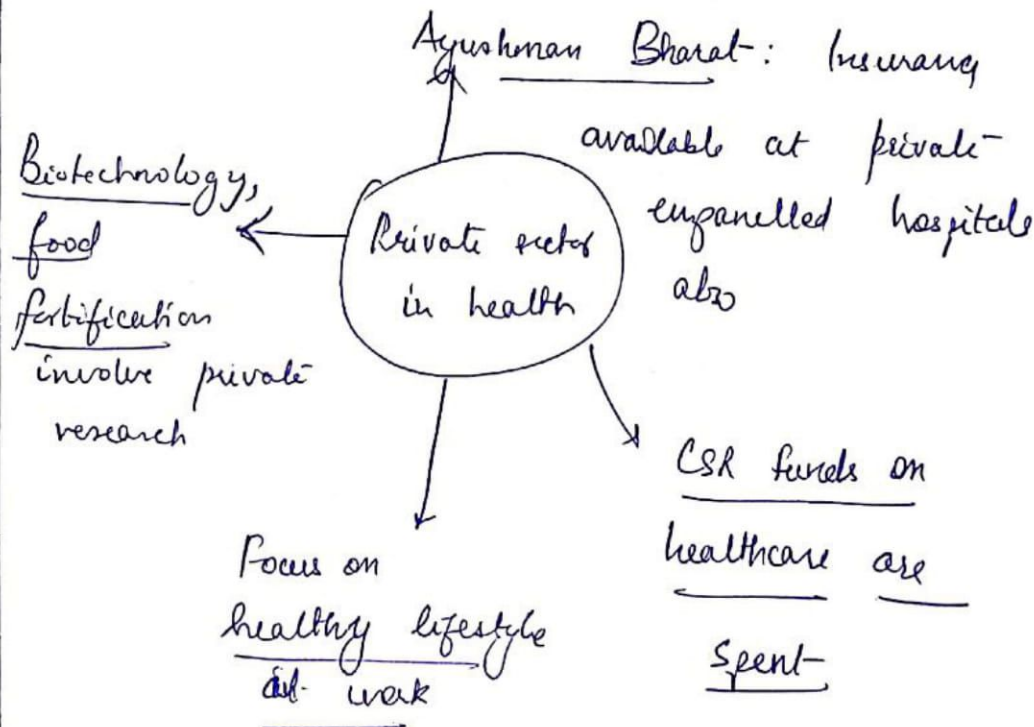 Ayushman Bharat: Insurance
available at private
empanelled hospitals
also
Biotechnology,
food
fortification
involve private
research
Private sector
in health
CSR funds on
healthcare are
spent
Focus on
healthy lifestyle
at work